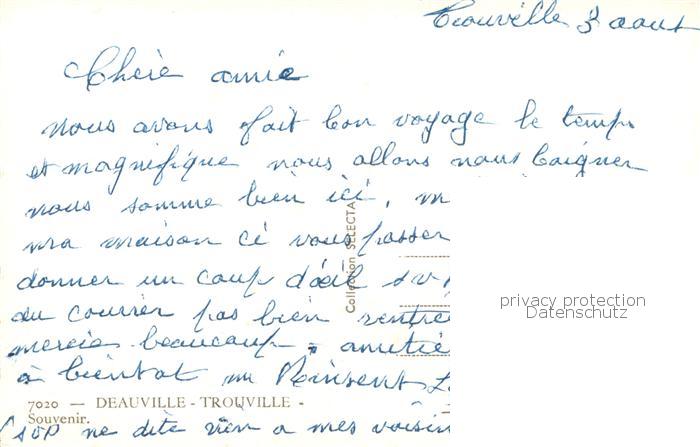 Trouville 3 aout
Chère amie
nous avons fait bon voyage le temps
et magnifique nous allons nous baigner
nous somme bien ici, m
ma maison ci vous passer
donner un coup d'œil svp
du courrier pas bien rentre
mercie beaucoup, amitié
à bientot
7020 — DEAUVILLE - TROUVILLE -
Souvenir.
(svp ne dite rien a mes voisin
Collection SELECTA
privacy protection
Datenschutz